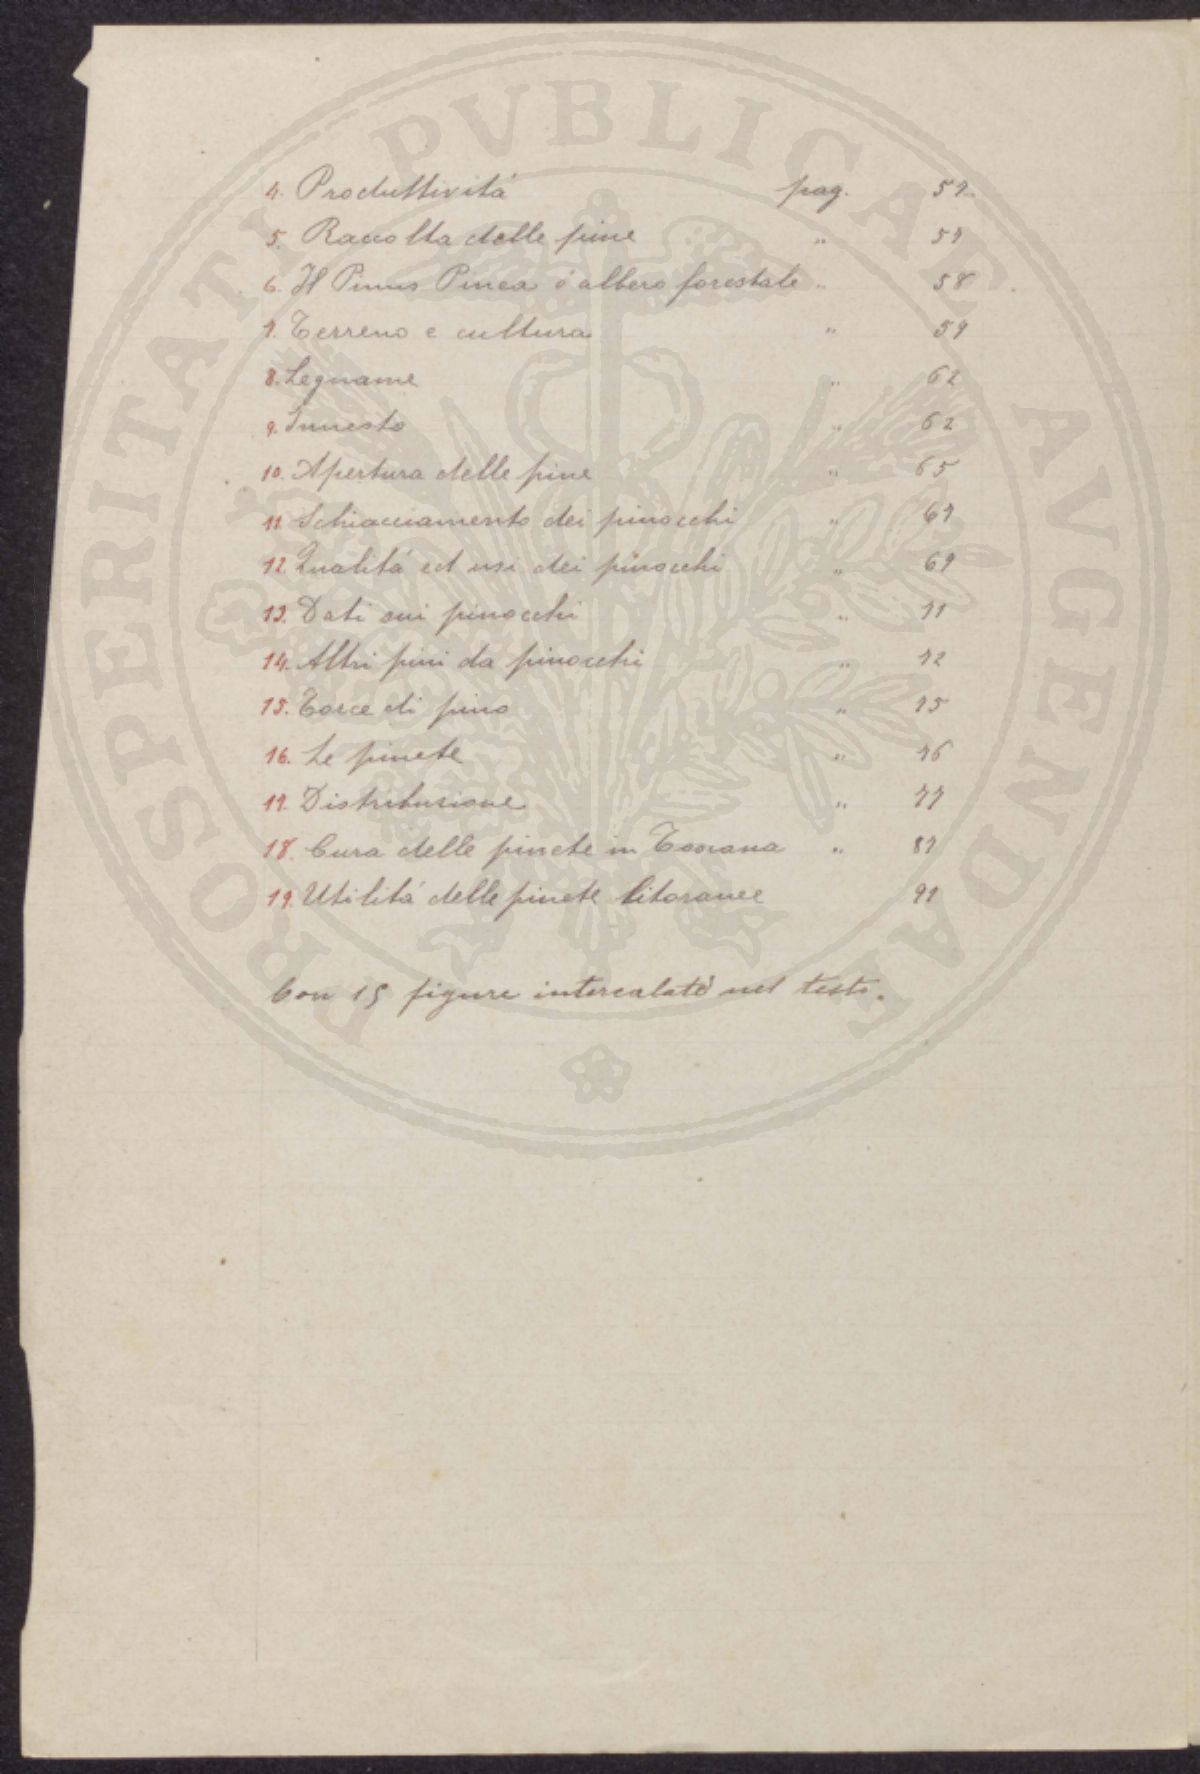 4. Produttivitá pag. 52
5. Raccolta delle pine " 57
6. Il Pinus Pinea é albero forestale " 58
7. Terreno e cultura " 59
8. Legname " 62
9. Innesto " 62
10. Apertura delle pine " 65
11. Schiacciamento dei pinocchi " 67
12. Qualitá ed usi dei pinocchi " 69
13. Dati sui pinocchi " 71
14. Altri pini da pinocchi " 72
15. Torce di pino " 75
16. Le pinete " 76
17. Distribuzione " 77
18. Cura delle pinete in Toscana " 87
19. Utilitá delle pinete litoranee 91
Con 15 figure intercalate nel testo.
PROSPERITATI PVBLICAE AVGENDAE